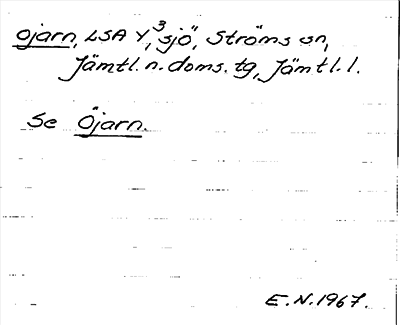 ojarn, LSA Y,³ sjö, Ströms sn,
Jämtl. n. doms. tg, Jämtl. l.
Se Öjarn.
E.N. 1967.